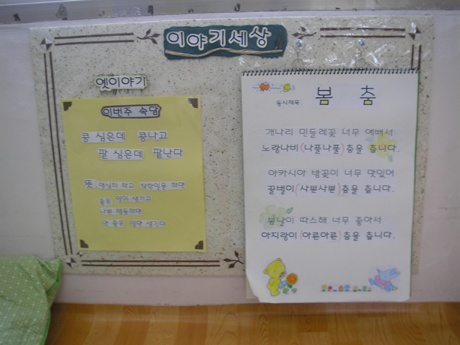 이야기세상
옛이야기
이번주 속담
콩 심은데 콩나고
팥 심은데 팥난다
뜻
동시제목
봄 춤
개나리 민들레꽃 너무 예뻐서
노랑나비(나풀나풀)춤을 춥니다.
아카시아 벌꽃이 너무 맛있어
꿀벌이(사뿐사뿐)춤을 춥니다.
봄날이 따스해 너무 좋아서
아지랑이(아른아른)춤을 춥니다.